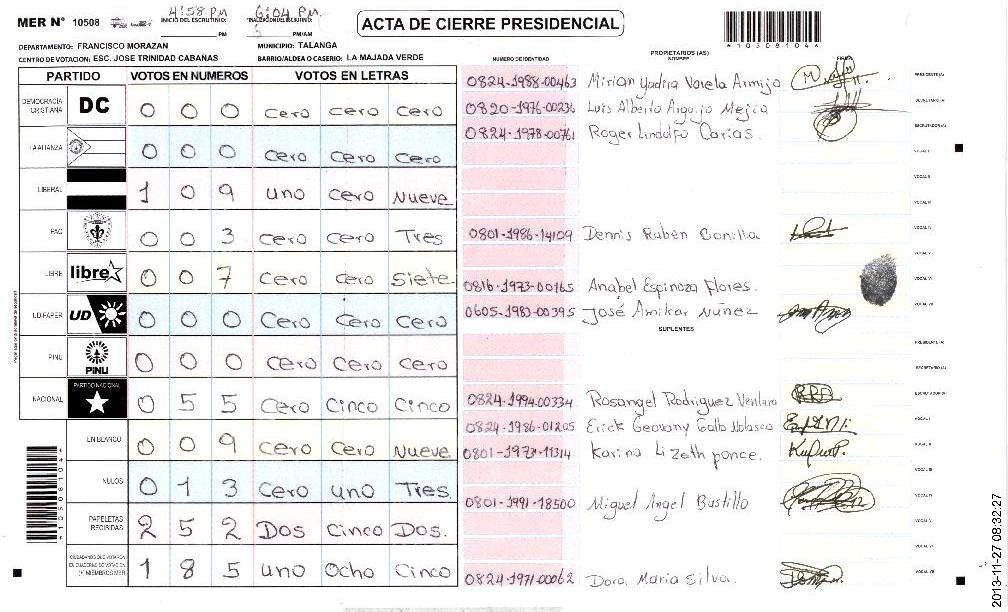 4:58 PM 6:04 PM.
MER N° 10508 INICIO DEL ESCRUTINIO: PM PM/AM
ACTA DE CIERRE PRESIDENCIAL
*1050810 4*
DEPARTAMENTO: FRANCISCO MORAZAN MUNICIPIO: TALANGA
CENTRO DE VOTACION: ESC. JOSE TRINIDAD CABAÑAS BARRIO/ALDEA O CASERIO: LA MAJADA VERDE
NUMERO DE IDENTIDAD PROPIETARIOS (AS) NOMBRE FIRMA
PARTIDO VOTOS EN NUMEROS VOTOS EN LETRAS
DEMOCRACIA CRISTIANA DC 0 0 0 cero cero cero
LA ALIANZA 0 0 0 cero cero cero
LIBERAL 1 0 9 uno cero Nueve
PAC 0 0 3 cero cero Tres
LIBRE libre 0 0 7 cero cero Siete
UD/FAPER UD 0 0 0 Cero Cero Cero
PINU PINU 0 0 0 Cero Cero Cero
NACIONAL PARTIDO NACIONAL 0 5 5 Cero Cinco Cinco
EN BLANCO 0 0 9 Cero Cero Nueve
NULOS 0 1 3 Cero uno Tres.
PAPELETAS RECIBIDAS 2 5 2 Dos Cinco Dos.
CIUDADANOS QUE VOTARON EN CUADERNO DE VOTACION (+) MIEMBROS MER 1 8 5 uno Ocho Cinco
0824-1988-00463 Mirian Yadira Varela Armijo PRESIDENTE (A)
0820-1976-00236 Luis Alberto Mejia SECRETARIO (A)
0824-1978-00761 Roger Lindolfo Carias. ESCRUTADOR (A)
VOCAL I
VOCAL II
VOCAL III
0801-1986-14109 Dennis Ruben Bonilla VOCAL IV
VOCAL V
0816-1973-00165 Anabel Espinoza Flores. VOCAL VI
0605-1983-00395 José Amilkar Nuñez VOCAL VII
SUPLENTES
PRESIDENTE (A)
SECRETARIO (A)
0824-1994-00334 Rosangel Rodriguez Ventura ESCRUTADOR (A)
0824-1986-01205 Erick Geovany Gallo Nolasco VOCAL I
Karina Lizeth ponce. VOCAL II
VOCAL III
0801-1991-18500 Miguel Angel Bustillo VOCAL IV
VOCAL V
VOCAL VI
0824-1971-00062 Dora Maria Silva. VOCAL VII
2013-11-27 08:32:27